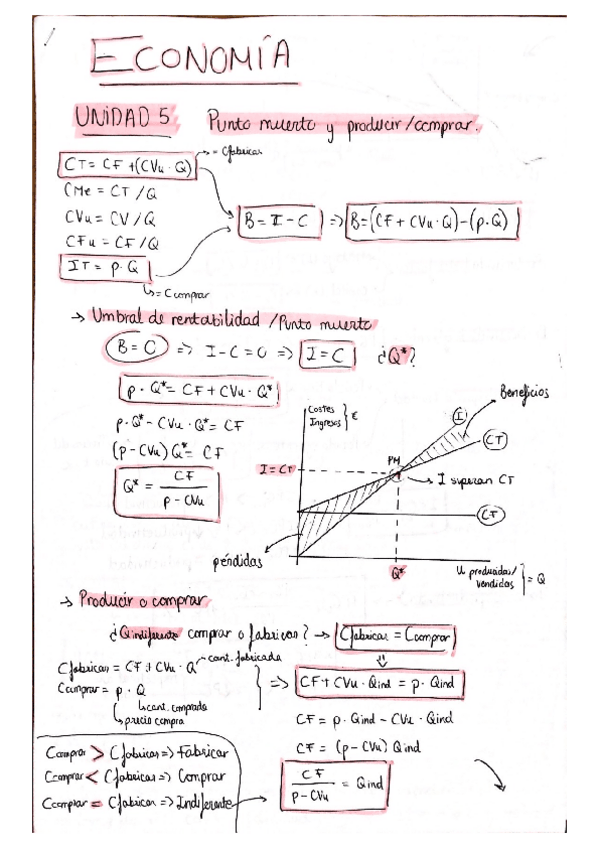 ECONOMÍA
UNIDAD 5 Punto muerto y producir/comprar.
CT = CF + (CVu · Q) → = Cfabricar
CMe = CT / Q
CVu = CV / Q
CFu = CF / Q
IT = p · Q
↳ = Ccomprar
B = I - C ⇒ B = (CF + CVu · Q) - (p · Q)
→ Umbral de rentabilidad / Punto muerto
B = 0 ⇒ I - C = 0 ⇒ I = C ¿Q*?
p · Q* = CF + CVu · Q*
p · Q* - CVu · Q* = CF
(p - CVu) Q* = CF
Q* = CF / p - CVu
Costes
Ingresos } €
I
Beneficios
CT
PM
I = CT
→ I superan CT
CT
pérdidas
Q*
U producidas/
vendidas } = Q
→ Producir o comprar
¿Qindiferente comprar o fabricar? → Cfabricar = Ccomprar
Cfabricar = CF + CVu · Q → cant. fabricada
Ccomprar = p · Q
↳ cant. comprada
↳ precio compra
⇒ CF + CVu · Qind = p · Qind
CF = p · Qind - CVu · Qind
CF = (p - CVu) Qind
CF / p - CVu = Qind
Ccomprar > Cfabricar ⇒ Fabricar
Ccomprar < Cfabricar ⇒ Comprar
Ccomprar = Cfabricar ⇒ Indiferente